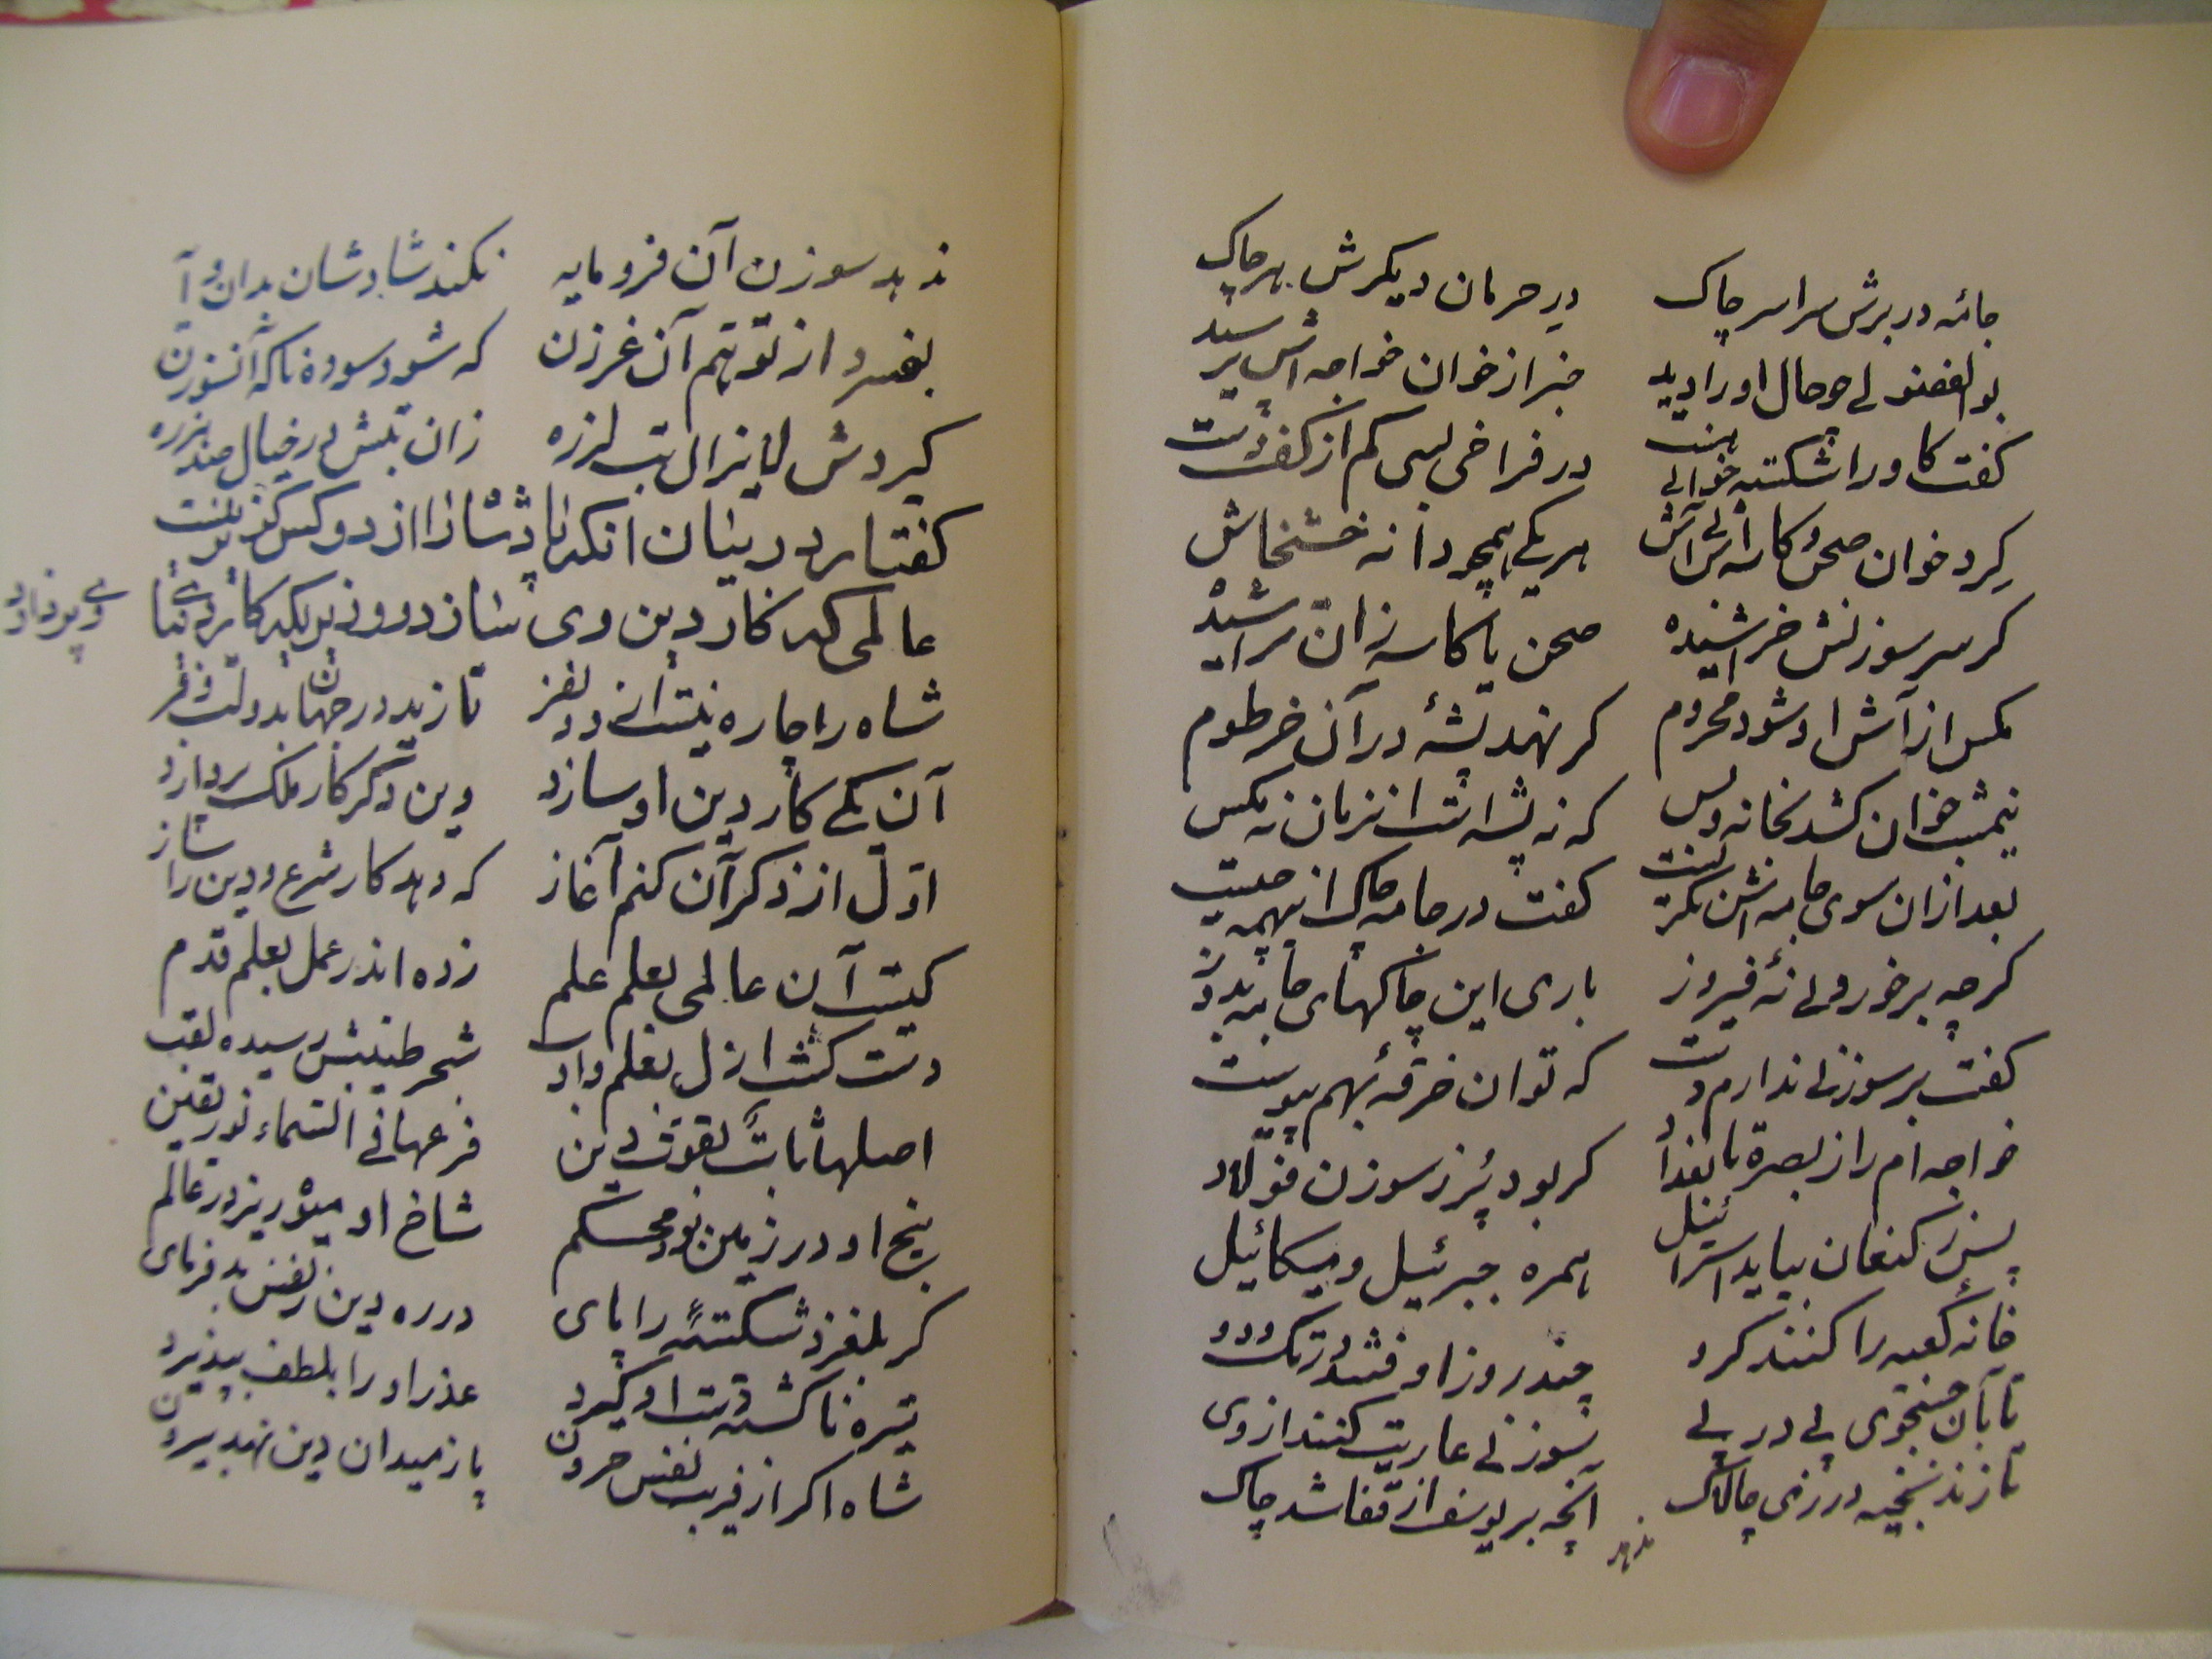 جامهٔ در برش سراسر چاک در حرمان دیگرش بهر چاک
بوالفضولے چو حال او را دید خبر از خوان خواجه اش پرسید
گفت کاو را شکسته خوانے هست در فراخی بسی کم از کف دست
گرد خوان صحن و کاسهٔ آش هر یکے همچو دانه خشخاش
گر سر سوزنش خراشیده صحن یا کاسه زان تراشیده
مگس از آش او شود محروم گر نهد پشهٔ در آن خرطوم
نیمشب خوان کشد بخانه و بس که نه پشه است انزمان نه مگس
بعد ازان سوی جامه اش نگریست گفت در جامه چاک اینهمه چیست
گرچه بر خورد ولے نهٔ فیروز باری این چاکهای جامه بدوز
گفت بر سوزنے ندارم دست که توان خرقهٔ بهم پیوست
خواجه ام را ز بصره تا بغداد گر بود پُر ز سوزن فولاد
پسر کنعان بیاید اسرائیل همره جبرئیل و میکائیل
خانه کعبه را کنند گرو چند روز اوفتند در تک و دو
تا بآن جستجوی پے در پے سوزنے عاریت کنند از وی
تا زند بخیه درزی چالاک آنچه بر یوسف از قفا شد چاک
ندهد
ندهد سوزن آن فرومایه نکند شادشان بدان
بفسرد از توهم آن غرزن که شود سوده ناگه آنسوزن
گیردش لایزال تب لرزه زان تبش در خیال صد هرزه
گفتار در بیان آنکه پادشاه را از دو کس گزیر نیست
عالمی که کار دین وی سازد و وزیریکه کار دنیای وی پردازد
شاه را چاره نیست از دو نفر تا زید در جهان بدولت و فر
آن یکے کار دین او سازد وین دگر کار ملک پردازد
اوّل از ذکر آن کنم آغاز که دهد کار شرع و دین را ساز
کیست آن عالمی بعلم علم زده اندر عمل بعلم قدم
دست کشت ازل بعلم و ادب شجر طیبش رسیده لقب
اصلها ثابت بقوت دین فرعها فے السّماء نور یقین
بیخ او در زمین بود محکم شاخ او میوه ریز در عالم
گر بلغزد شکستهٔ را پای در ره دین ز نفس بد فرمای
تیره ناگشته دست او گیرد عذر او را بلطف بپذیرد
شاه اگر از فریب نفس حرون پا ز میدان دین نهد بیرون